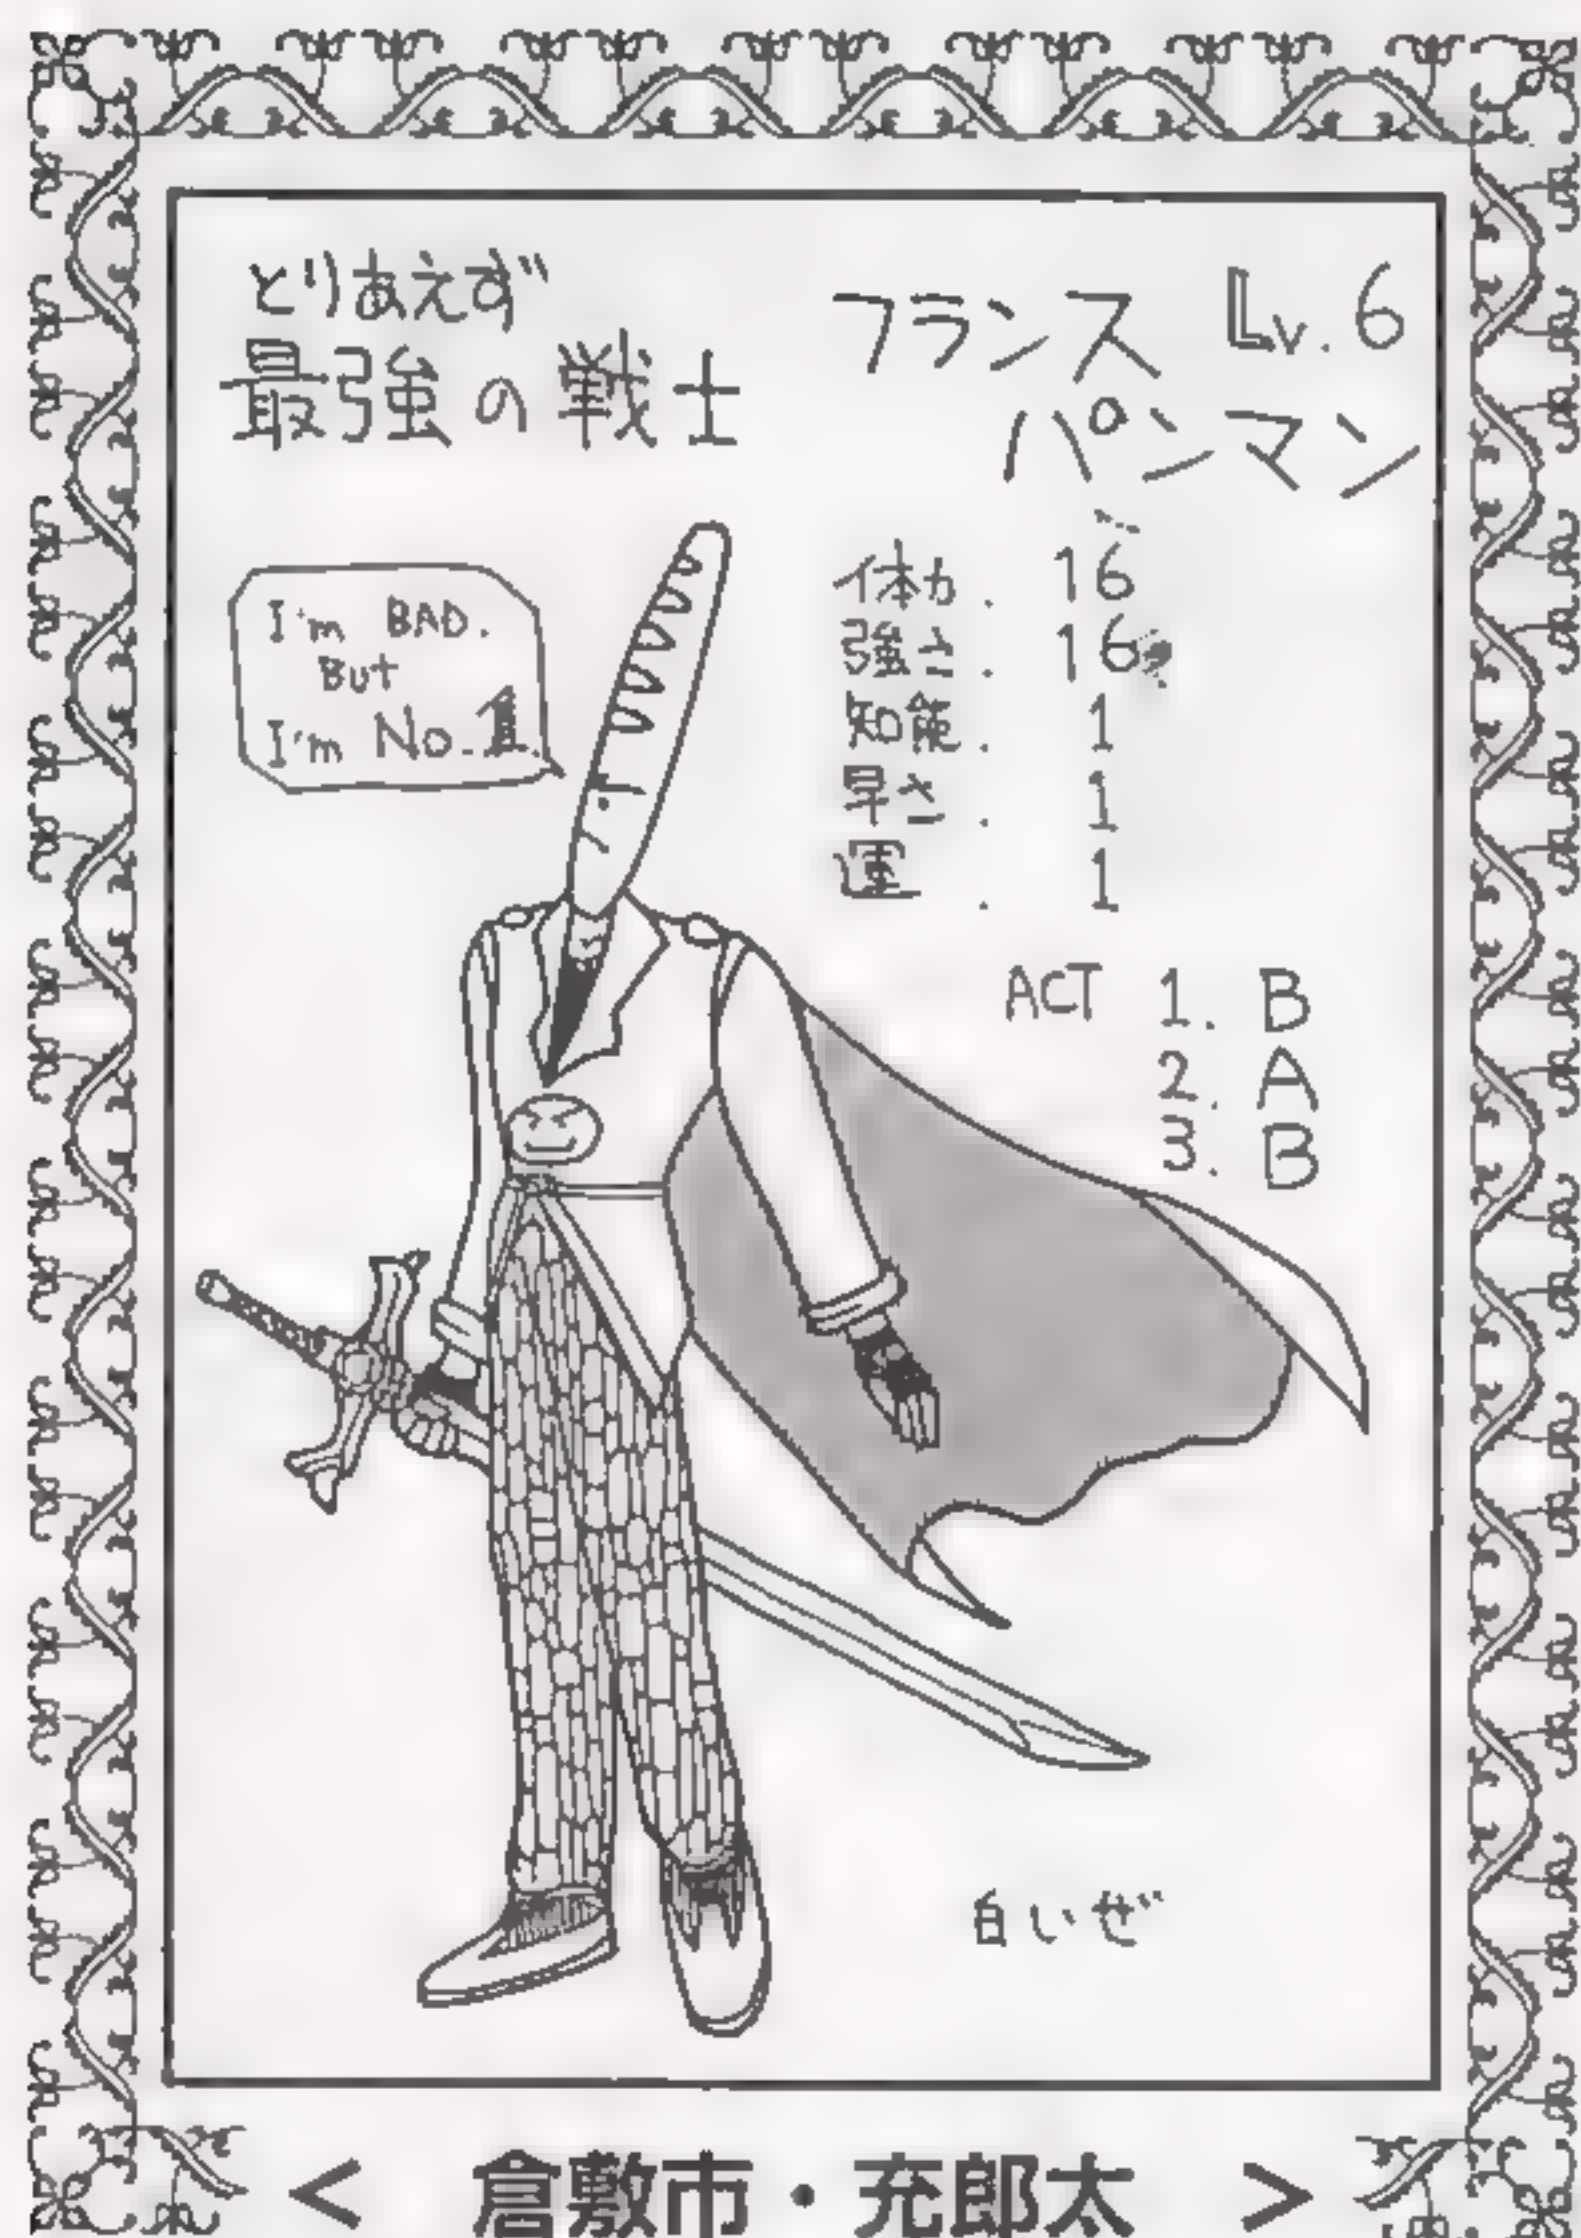 とりあえず
最強の戦士
フランス Lv.6
パンマン
I'm BAD.
But
I'm No.1
体力. 16
強さ. 16
知能. 1
早さ. 1
運. 1
ACT 1. B
2. A
3. B
白いぜ
< 倉敷市・充郎太 >